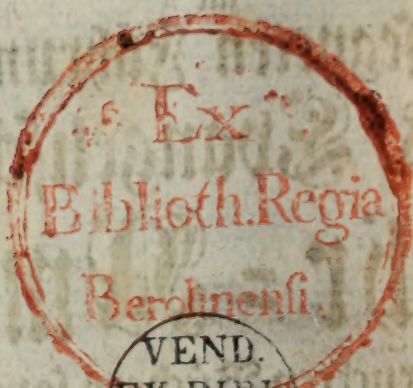 Ex
Biblioth. Regia
Berolinenſi.
VEND.
EX BIBL